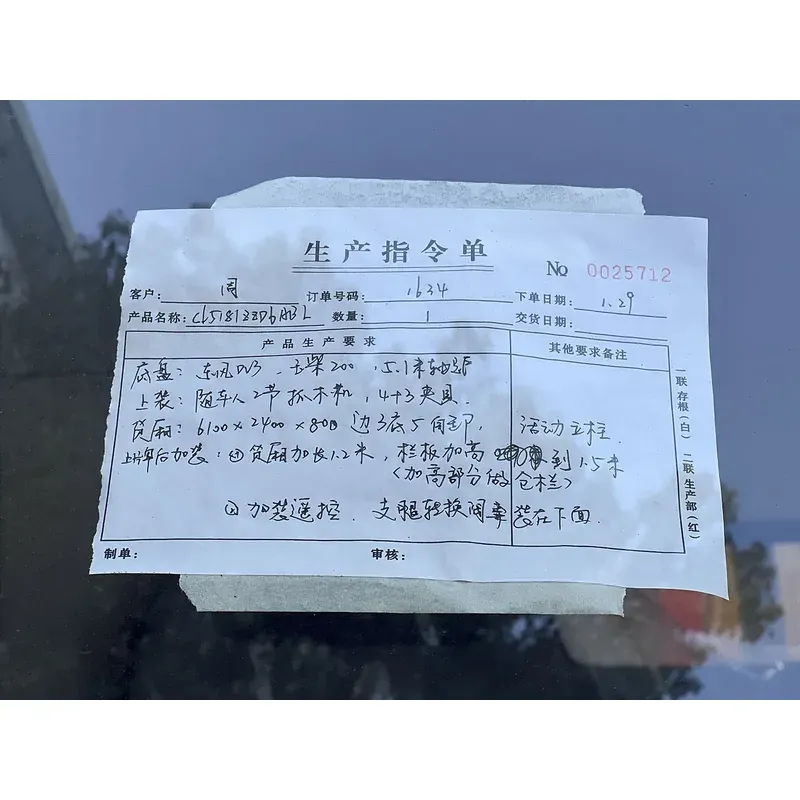 生产指令单
No 0025712
客户: 周 订单号码: 1634 下单日期: 1.29
产品名称: 数量: 1 交货日期:
产品生产要求 其他要求备注
底盘: 东风DV3 、玉柴200 , 5.1米轴距
上装: 随车人2节抓木机, 4+3夹具.
货厢: 6100×2400×800 边3底5自卸, 活动立柱.
上牌后加装: ① 货厢加长1.2米, 栏板加高 到1.5米
(加高部分做仓栏)
② 加装遥控. 支腿转换阀 装在下面.
制单: 审核:
一联存根(白) 二联生产部(红)